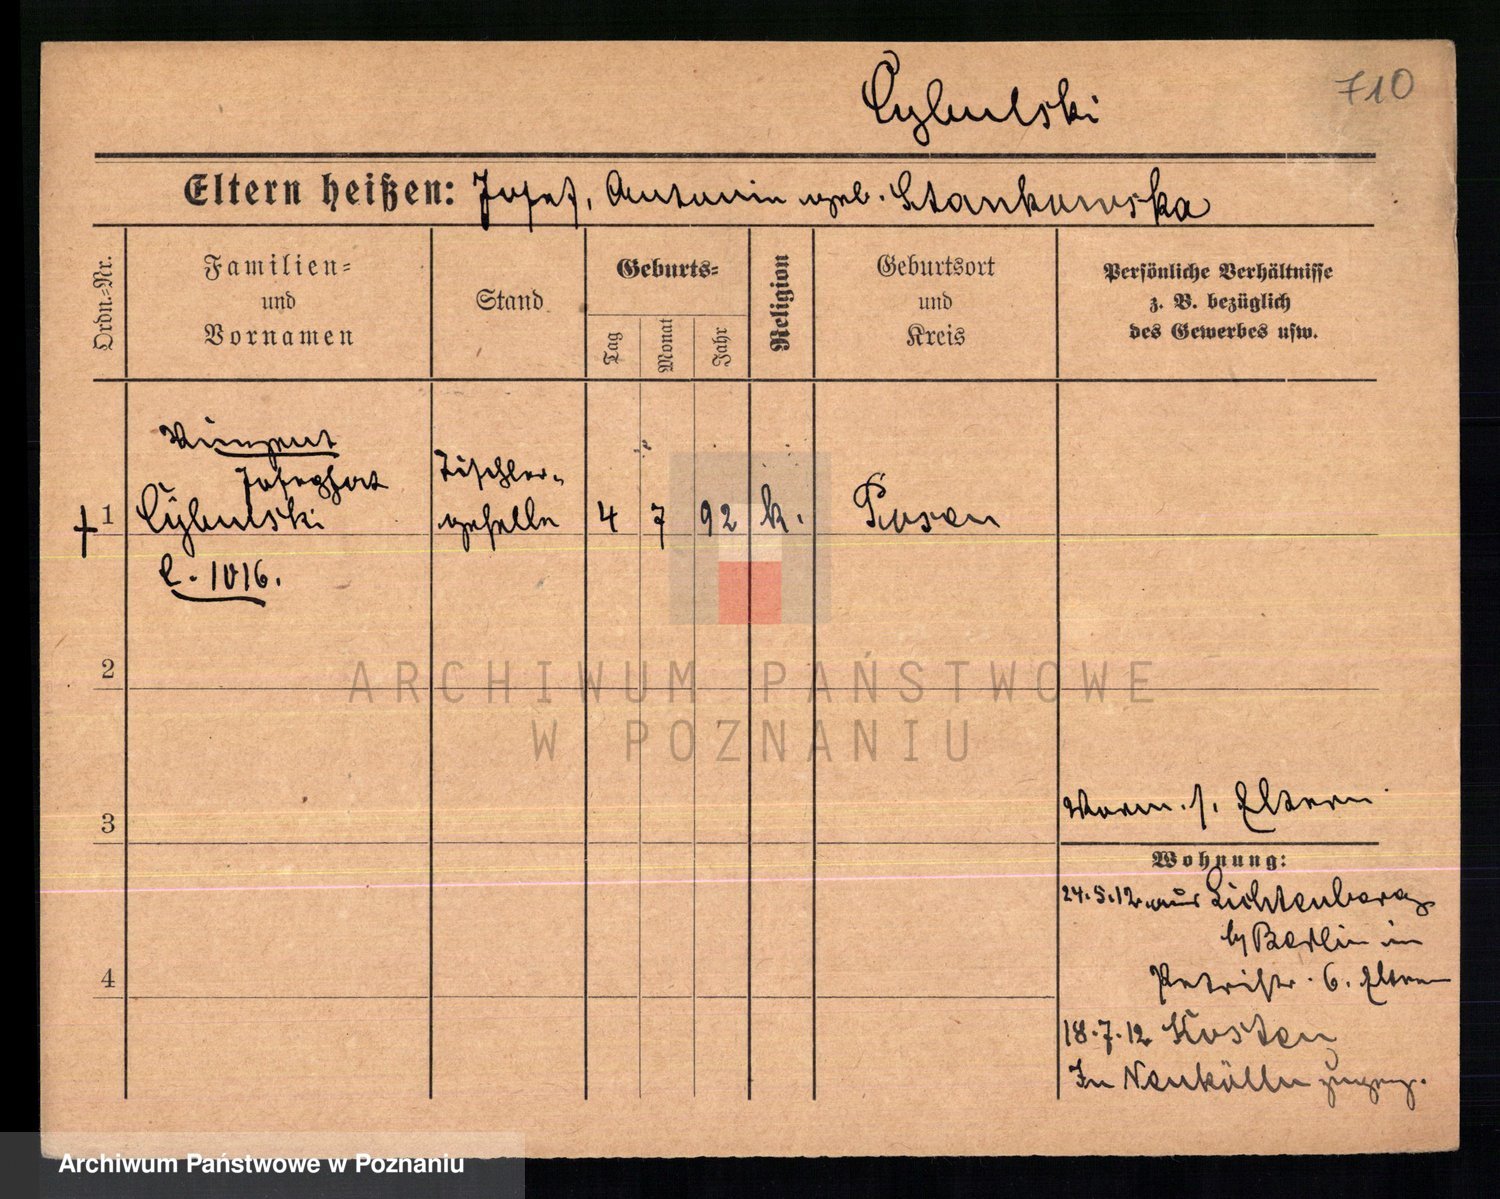 710
Cybulski
Eltern heißen: Josef, Antonie geb. Stankowska
Ordn.-Nr.
Familien-
und
Vornamen
Stand
Geburts-
Tag
Monat
Jahr
Religion
Geburtsort
und
Kreis
Persönliche Verhältnisse
z. B. bezüglich
des Gewerbes usw.
Vinzent
Josephat
† 1 Cybulski
C. 1016.
Tischler-
geselle
4 7 92 k. Posen
2
3
4
Vorm. s. Eltern
Wohnung:
24.5.12 aus Lichtenberg
b/ Berlin in
Petristr. 6. Eltern
18.7.12 Kosten
In Neukölln zugez.
ARCHIWUM PAŃSTWOWE
W POZNANIU
Archiwum Państwowe w Poznaniu